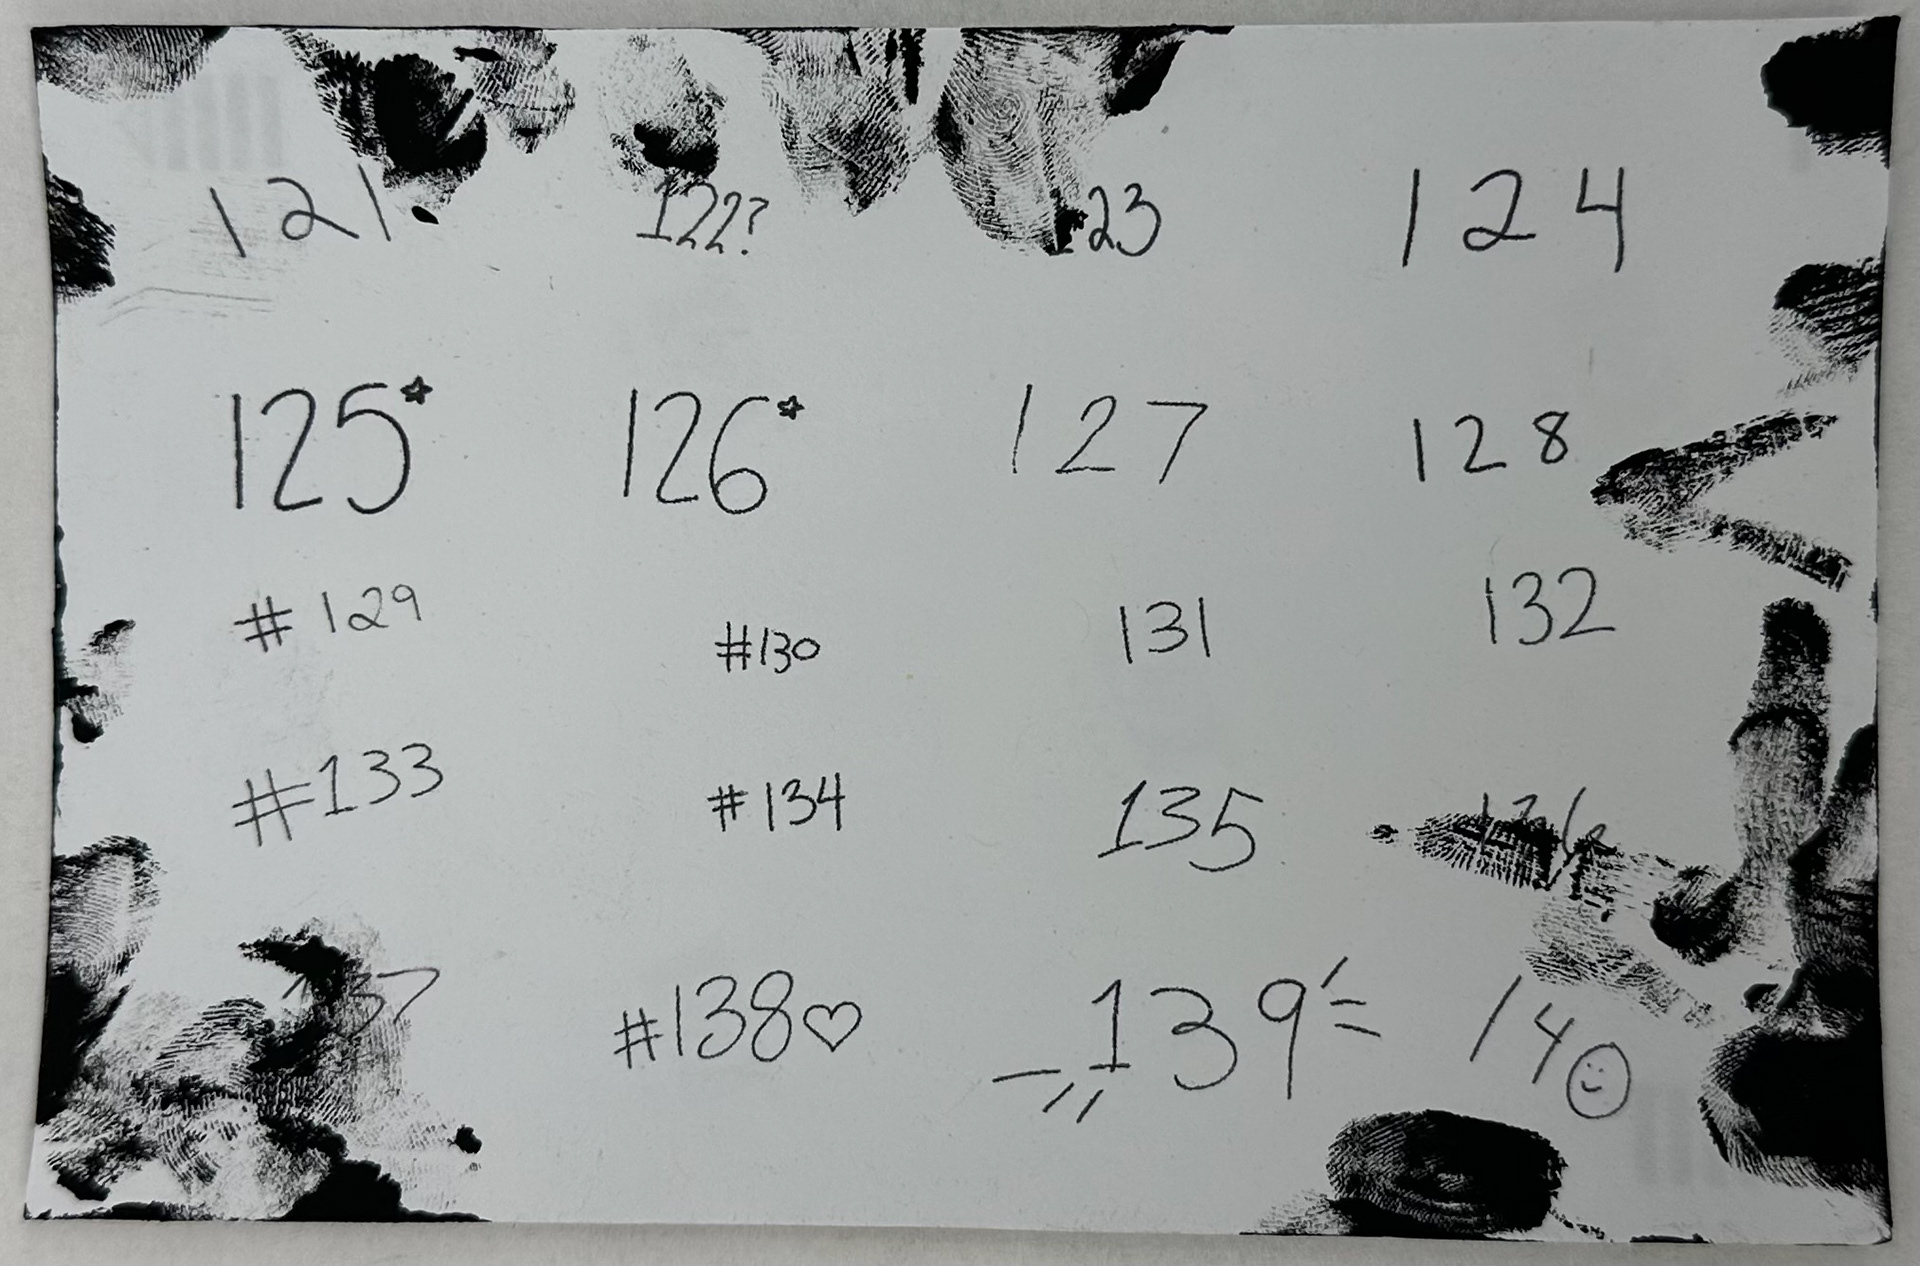 121 122? 123 124
125* 126* 127 128
#129 #130 131 132
#133 #134 135 136
137 #138♡ 139 14☺